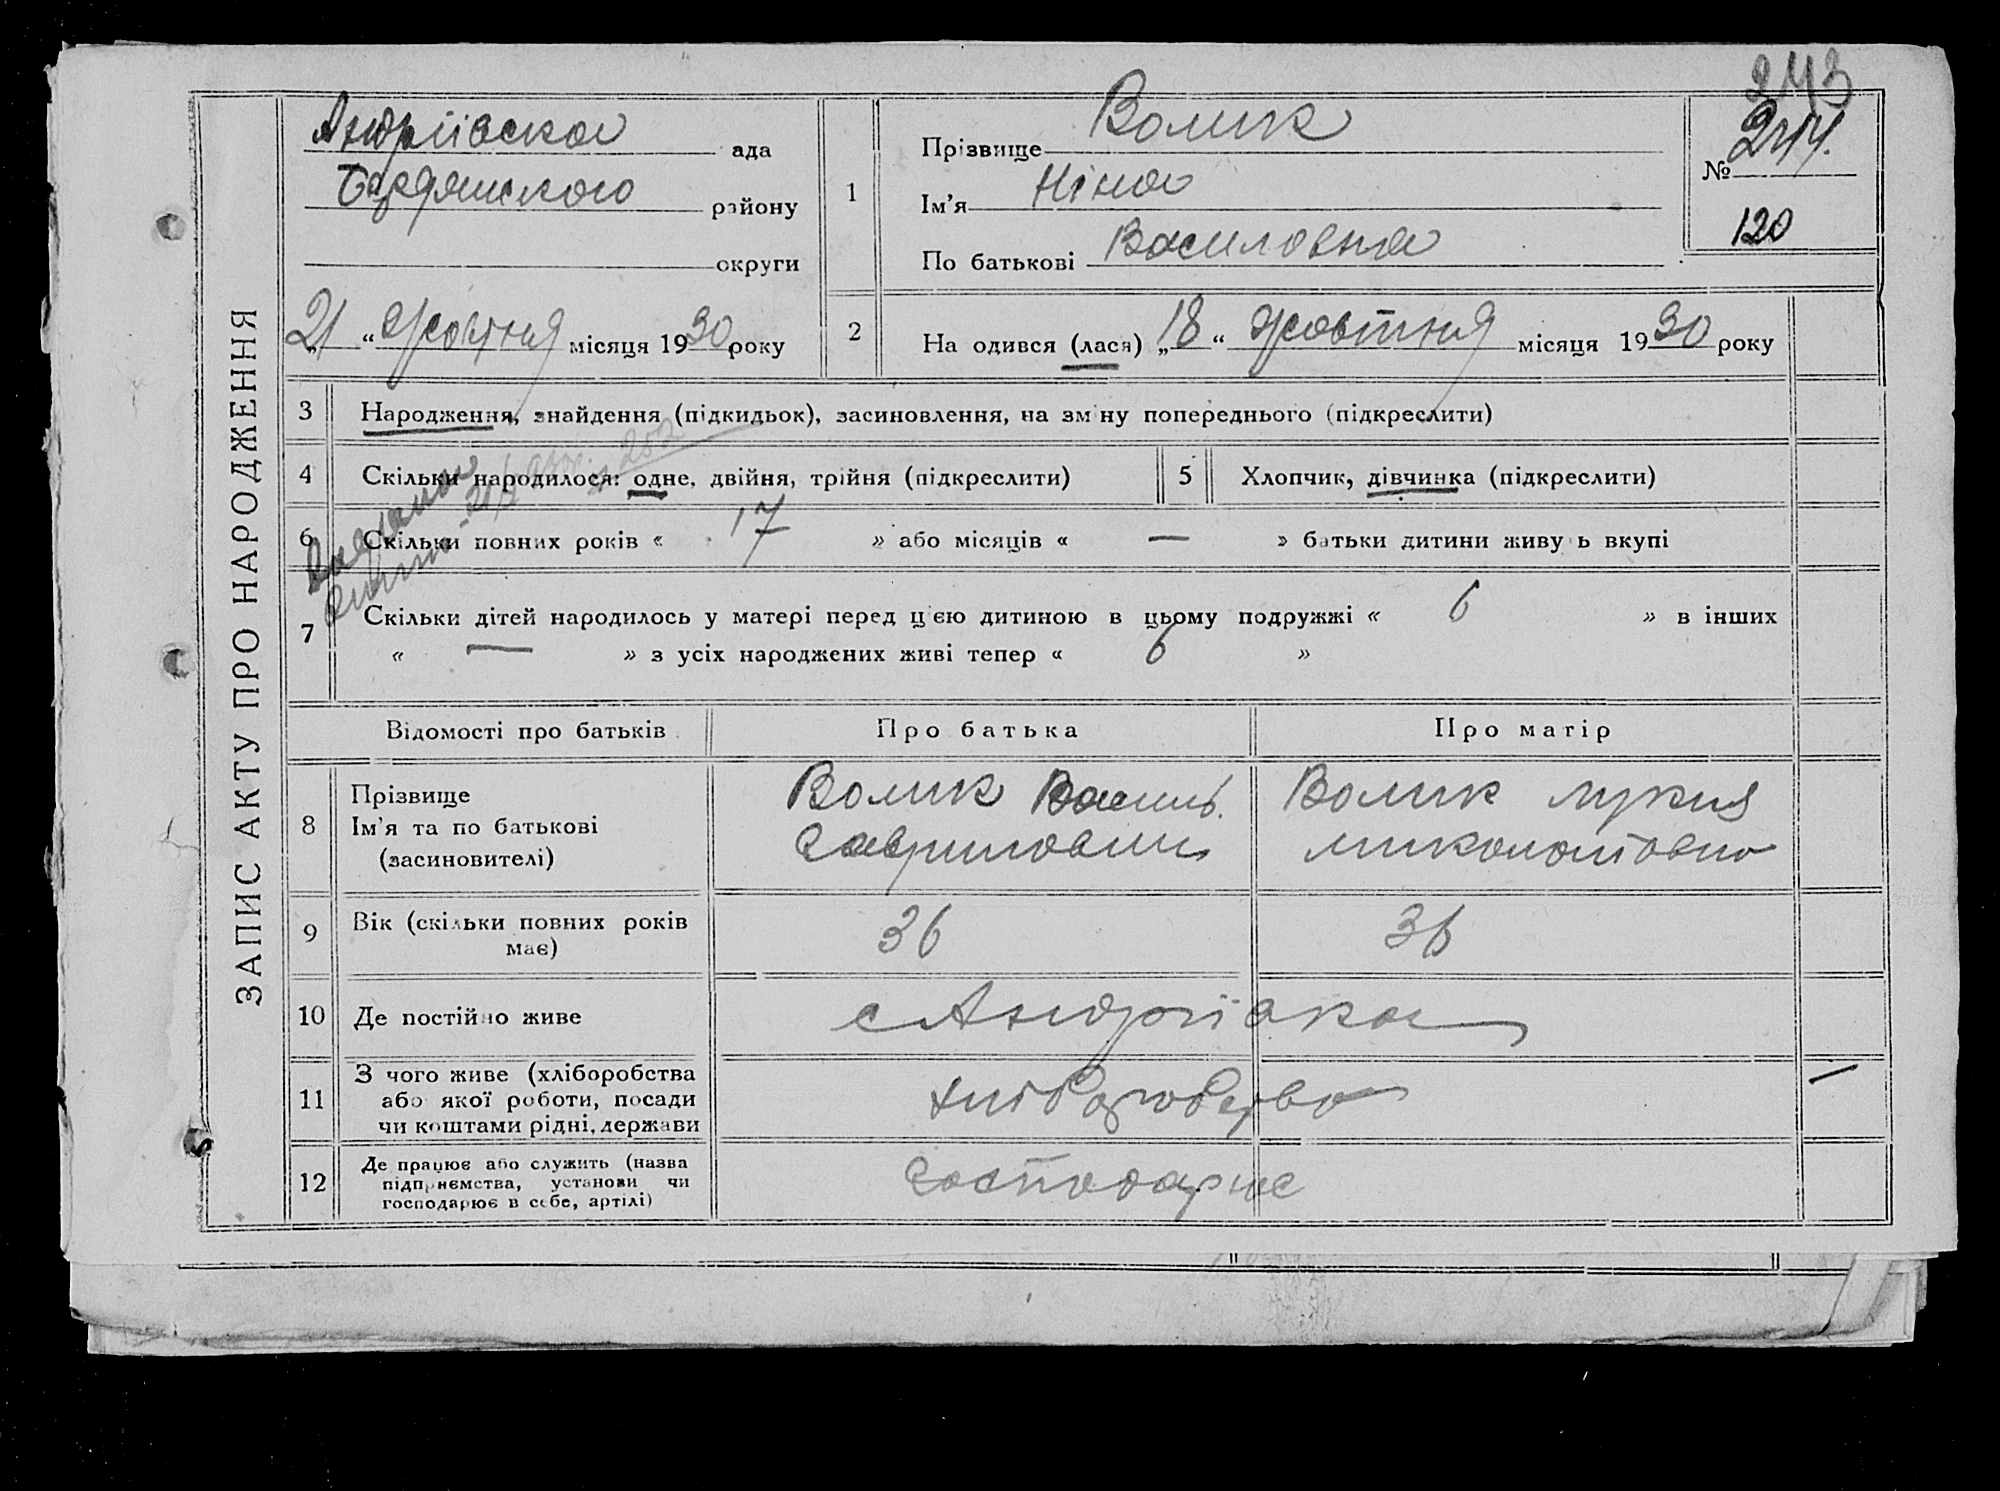 243
ЗАПИС АКТУ ПРО НАРОДЖЕННЯ
Андріївська ада
Бердянського району
округи
21 “ жовтня місяця 1930 року
1
Прізвище Волик
Ім'я Ніна
По батькові Василовна
№ 244.
120
2
На одився (лася) „18 “ жовтня місяця 1930 року
3 Народження, знайдення (підкидьок), засиновлення, на зміну попереднього (підкреслити)
4 Скільки народилося: одне, двійня, трійня (підкреслити)
5 Хлопчик, дівчинка (підкреслити)
6 Скільки повних років « 17 » або місяців « — » батьки дитини живу ь вкупі
7 Скільки дітей народилось у матері перед цією дитиною в цьому подружжі « 6 » в інших
« — » з усіх народжених живі тепер « 6 »
Відомості про батьків Про батька Про матір
8 Прізвище
Ім'я та по батькові
(засиновителі)
Волик Василь.
Гаврилович
Волик Лукія
Миколаївна
9 Вік (скільки повних років
має)
36 36
10 Де постійно живе с Андріївка
11 З чого живе (хліборобства
або якої роботи, посади
чи коштами рідні, держави
хліборобство
12 Де працює або служить (назва
підприємства, установи чи
господарює в себе, артілі)
господарює